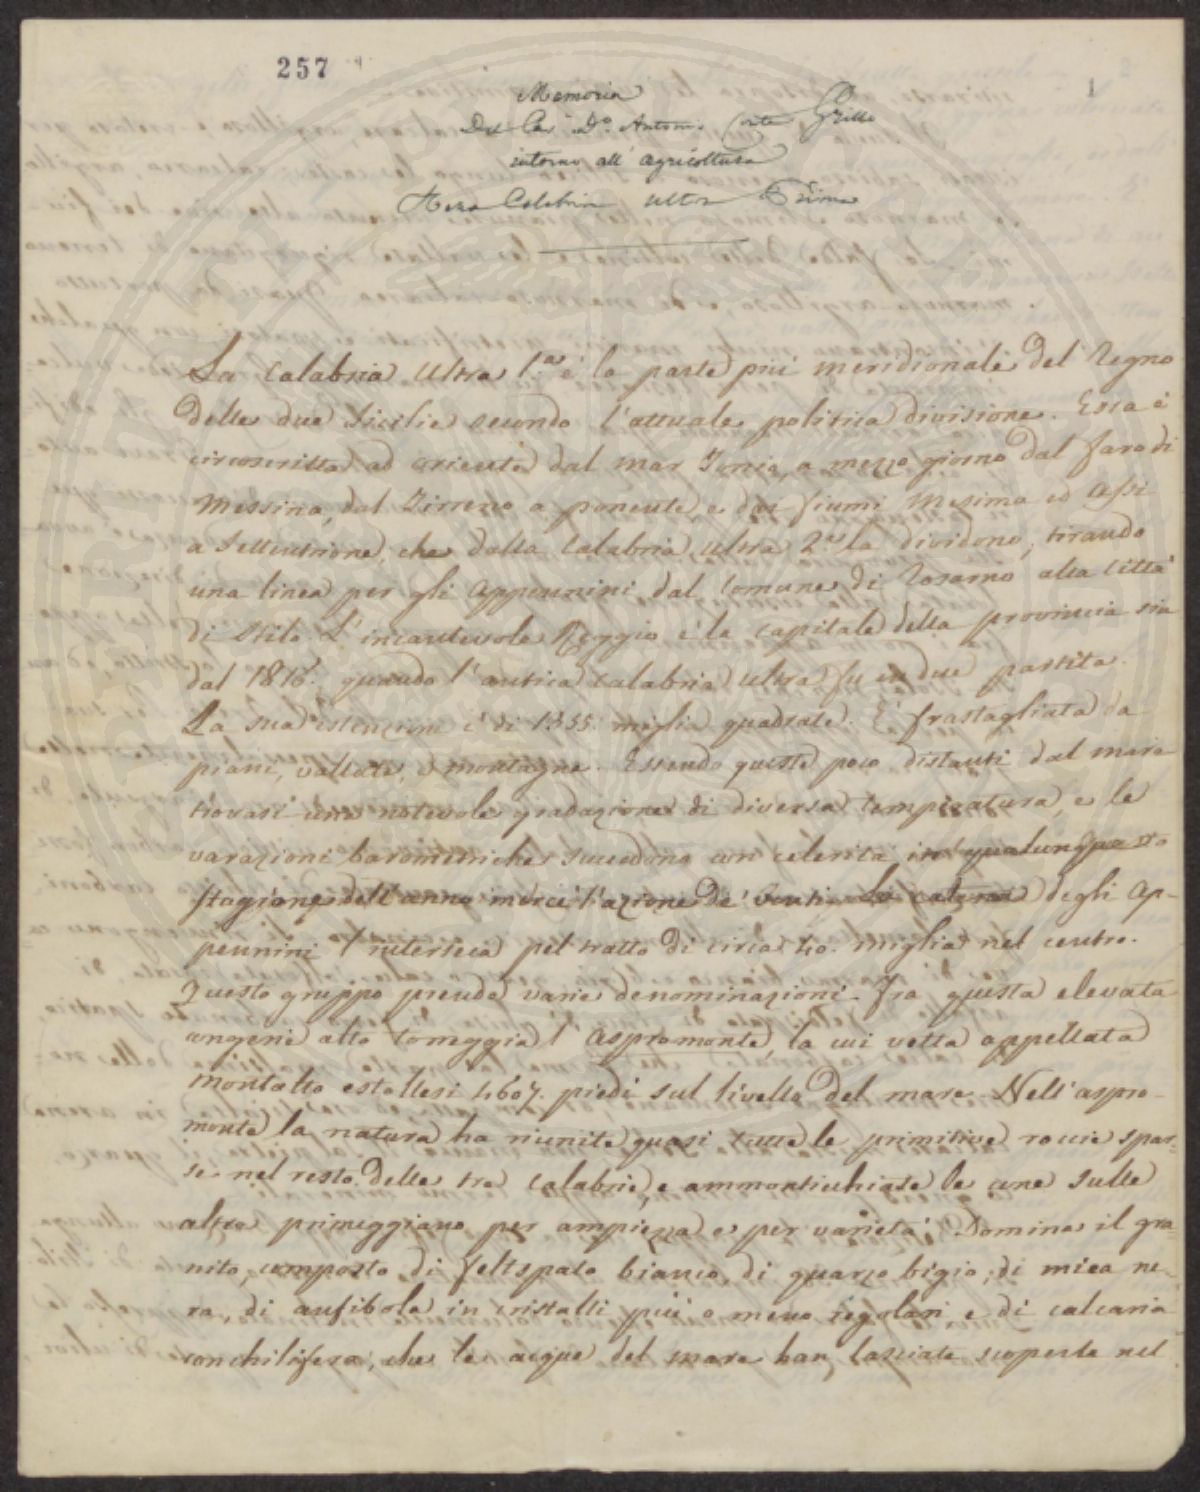 257
1
Memoria
Del Cav. Dn. Antonio Conte Grillo
intorno all' agricoltura
della Calabria Ultra Prima
La Calabria Ultra 1.a è la parte più meridionale del Regno
delle due Sicilie secondo l'attuale politica divisione. Essa è
circoscritta ad oriente dal mar Jonio, a mezzo giorno dal faro di
Messina, dal Tirreno a ponente, e dai fiumi Mesima ed Assi
a Settentrione, che dalla Calabria ultra 2.a la dividono, tirando
una linea per gli Appennini dal Comune di Rosarno alla Città
di Stilo. L'incantevole Reggio è la capitale della provincia sin
dal 1816. quando l'antica Calabria ultra fu in due partita.
La sua estenzione è di 1355. miglia quadrate. E' frastagliata da
piani, vallate, e montagne. Essendo queste poco distanti dal mare
trovasi una notevole gradazione di diversa temperatura, e le
varazioni barometriche succedono con celerità in qualunque
stagione dell'anno mercè l'azione de' venti. La catena degli Ap-
pennini l'interseca pel tratto di circa 40. miglia nel centro.
Questo gruppo prende varie denominazioni. Fra questa elevata
congerie alto torreggia l'Aspromonte, la cui vetta appellata
Montalto estollesi 4607. piedi sul livello del mare. Nell'aspro-
monte la natura ha riunite quasi tutte le primitive roccie spar-
se nel resto delle tre Calabrie, e ammonticchiate le une sulle
altre primeggiano per ampiezza e per varietà. Domina il gra-
nito, composto di feltspato bianco, di quarzo bigio, di mica ne-
ra, di anfibola in cristalli più o meno regolari, e di calcaria
conchilifera, che le acque del mare han lasciate scoperte nel